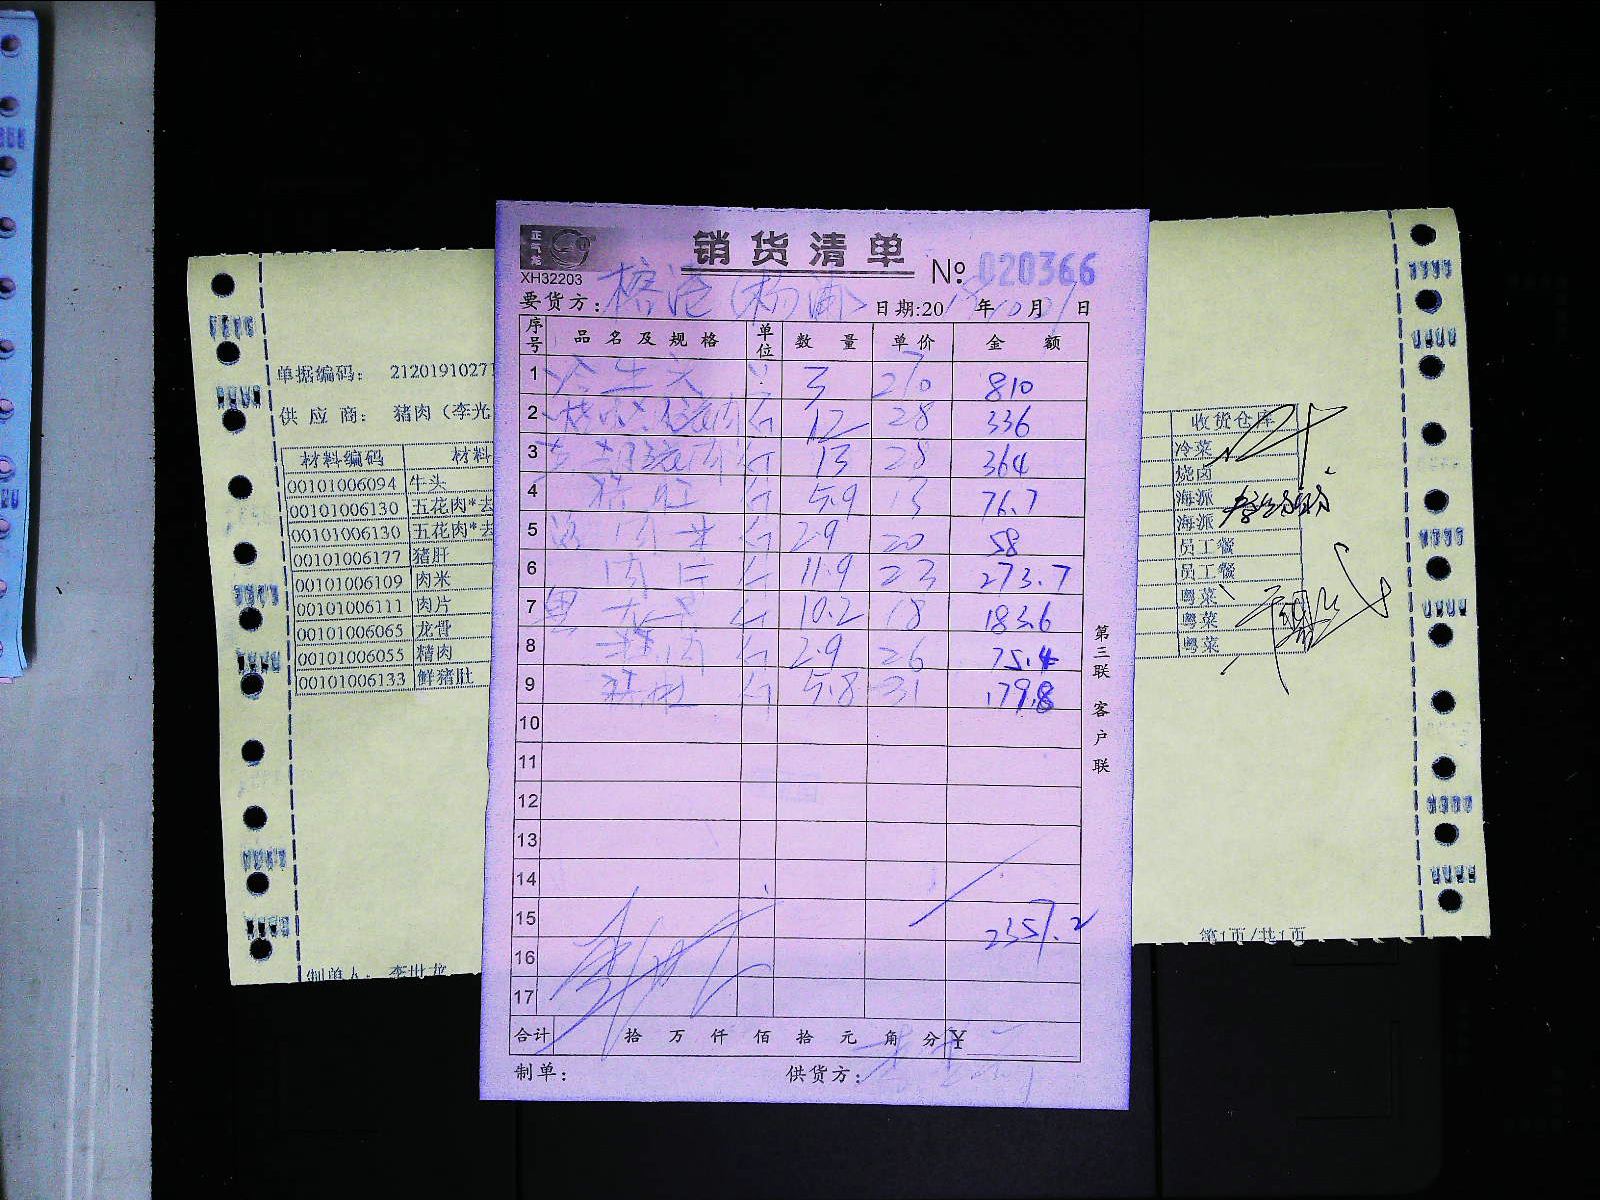 正气龙
销货清单
XH32203
№ 020366
要货方: 榕港(杨浦) 日期:20 年10月 日
序号 品名及规格 单位 数量 单价 金额
1 冷 牛头 3 270 810
2 烧 五花肉 斤 12 28 336
3 五花肉 斤 13 28 364
4 猪肝 斤 5.9 13 76.7
5 肉米 斤 2.9 20 58
6 肉片 斤 11.9 23 273.7
7 粤 龙骨 斤 10.2 18 183.6
8 精肉 斤 2.9 26 75.4
9 猪肚 斤 5.8 31 179.8
10
11
12
13
14
15 2357.2
16
17
合计 拾 万 仟 佰 拾 元 角 分 ¥
制单: 供货方:
第三联 客户联
单据编码: 21201910271
供应商: 猪肉(李光
材料编码 材料
00101006094 牛头
00101006130 五花肉*去
00101006130 五花肉*去
00101006177 猪肝
00101006109 肉米
00101006111 肉片
00101006065 龙骨
00101006055 精肉
00101006133 鲜猪肚
制单人: 李世龙
收货仓库
冷菜
烧卤
海派
海派
员工餐
员工餐
粤菜
粤菜
粤菜
第1页/共1页